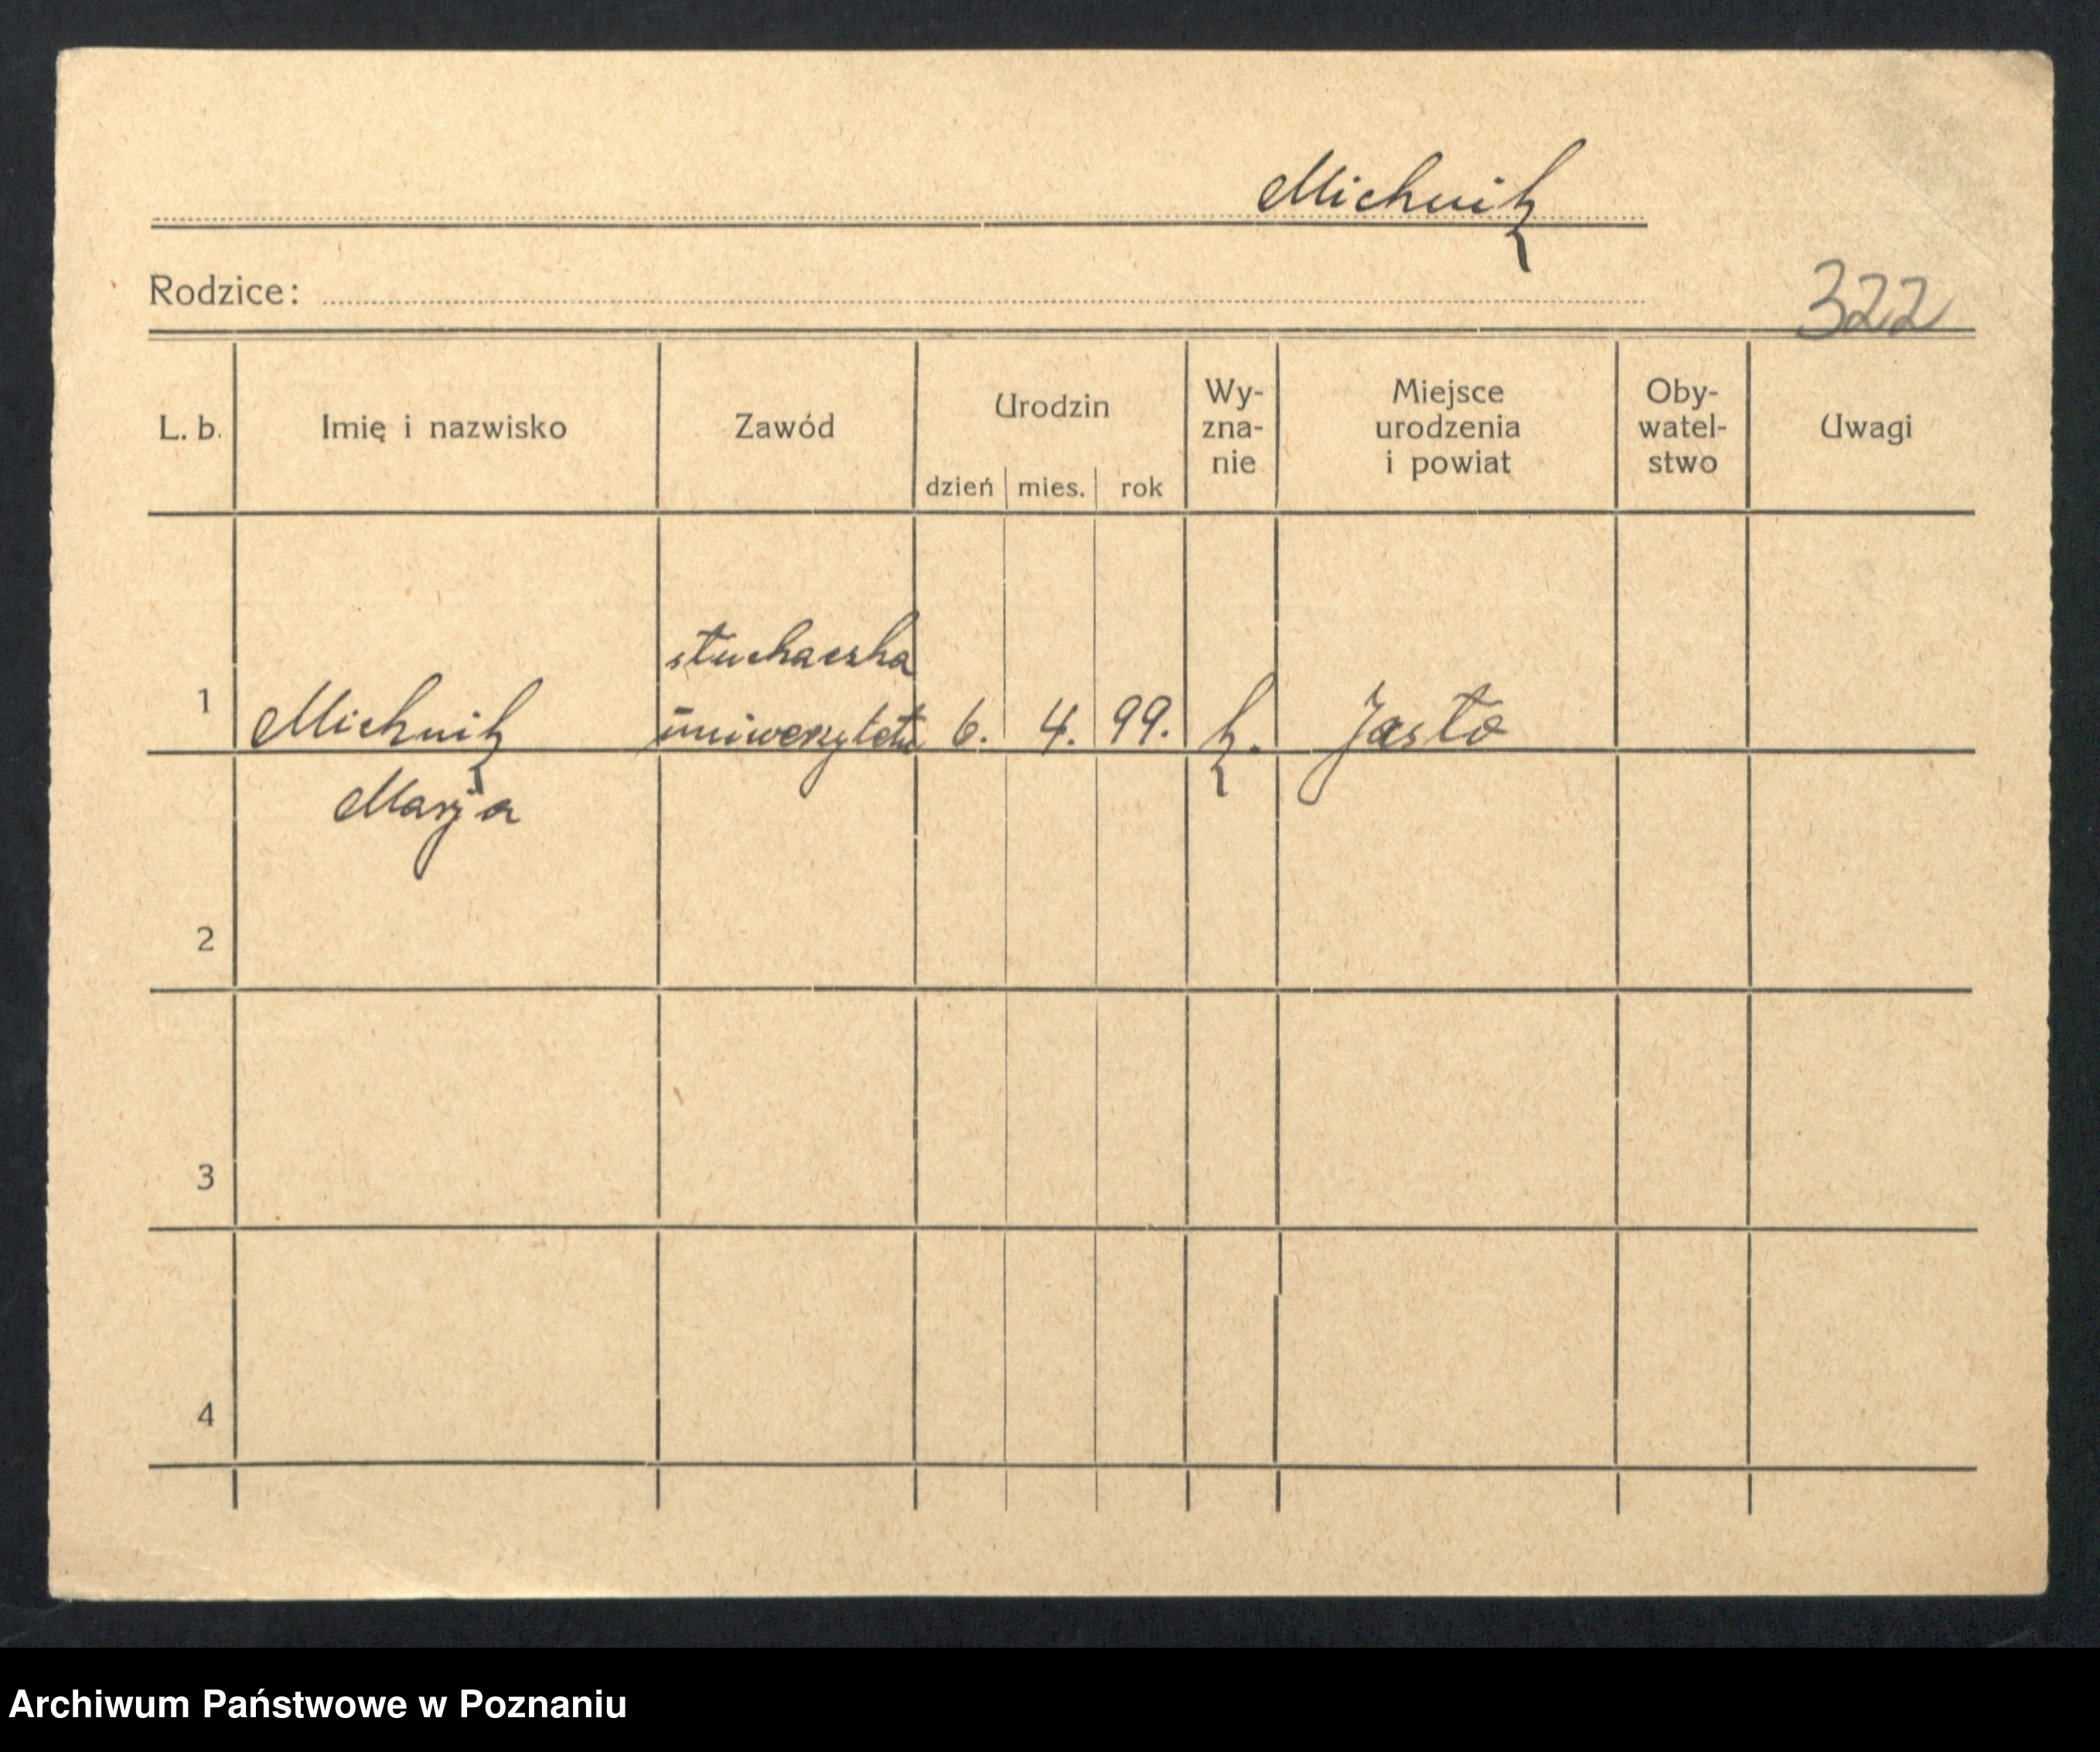 Michnik
Rodzice:
322
L. b.
Imię i nazwisko
Zawód
Urodzin
dzień
mies.
rok
Wy-
zna-
nie
Miejsce
urodzenia
i powiat
Oby-
watel-
stwo
Uwagi
1
Michnik
Marja
słuchaczka
uniwersytetu
6.
4.
99.
k.
Jasło
2
3
4
Archiwum Państwowe w Poznaniu